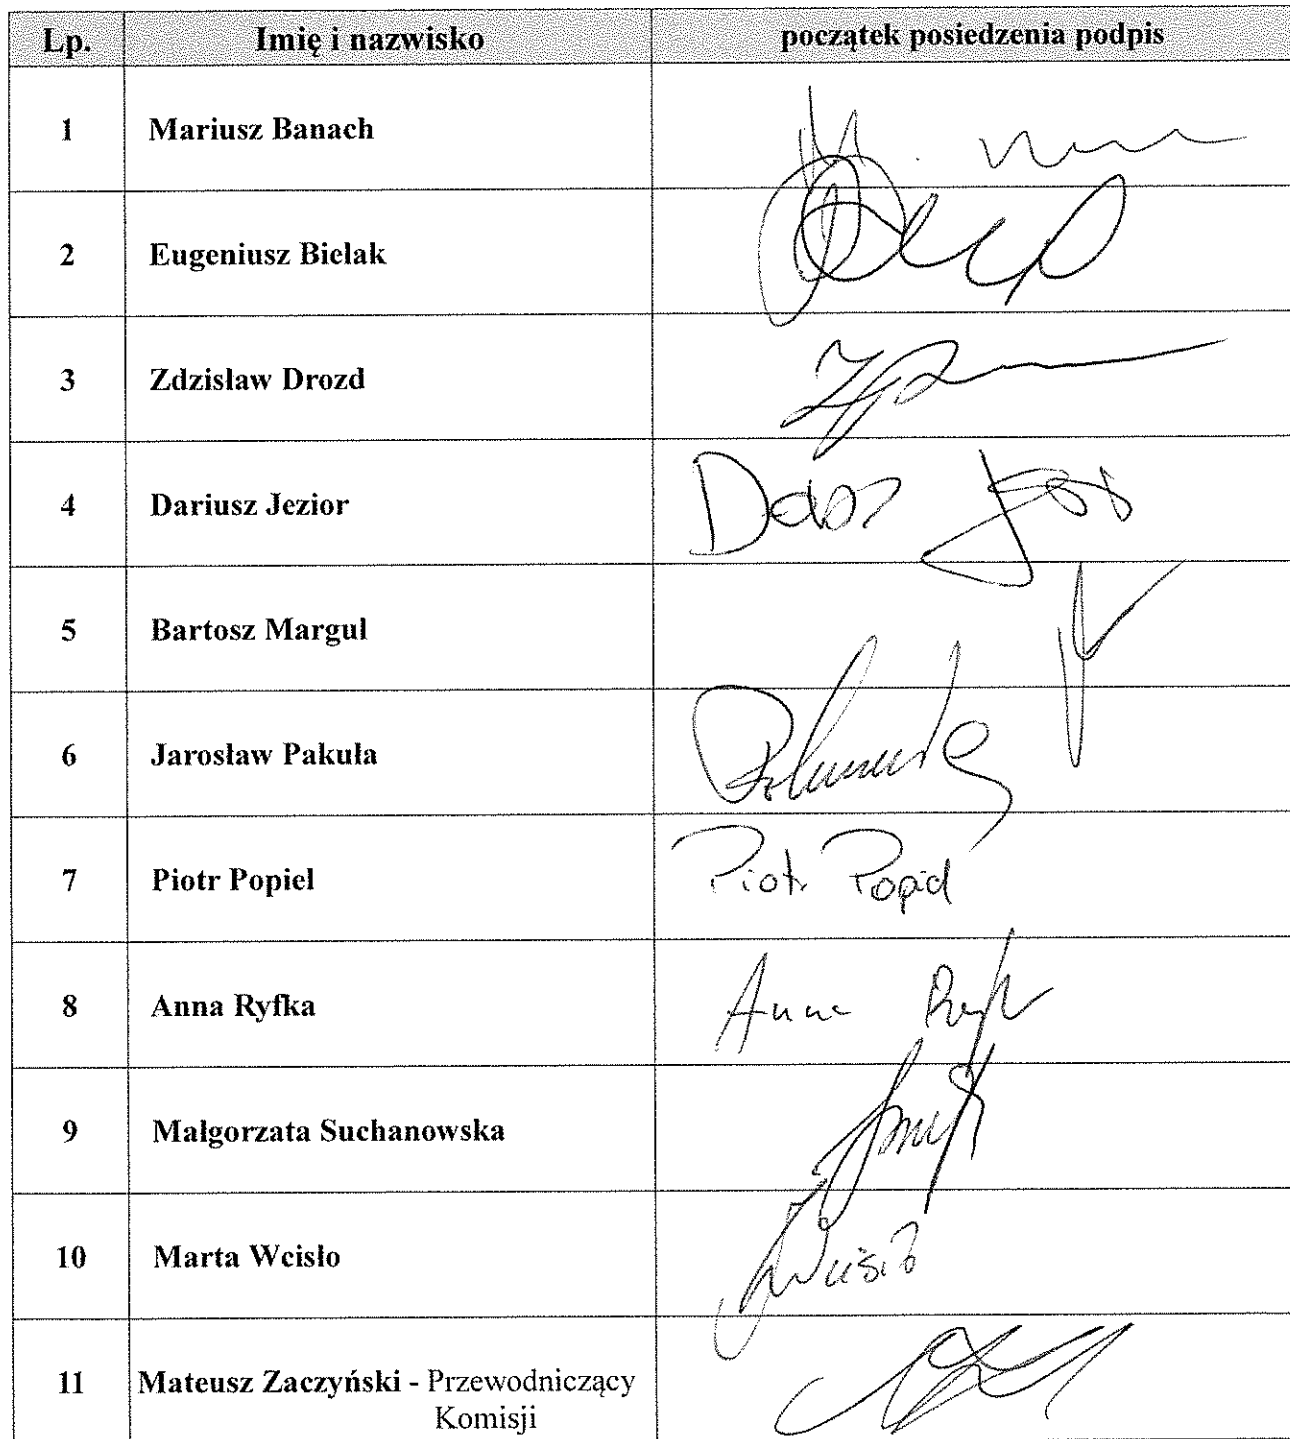 Lp. Imię i nazwisko początek posiedzenia podpis
1 Mariusz Banach
2 Eugeniusz Bielak
3 Zdzisław Drozd
4 Dariusz Jezior
5 Bartosz Margul
6 Jarosław Pakuła
7 Piotr Popiel Piotr Popiel
8 Anna Ryfka Anna
9 Małgorzata Suchanowska
10 Marta Wcisło Wcisło
11 Mateusz Zaczyński - Przewodniczący
Komisji